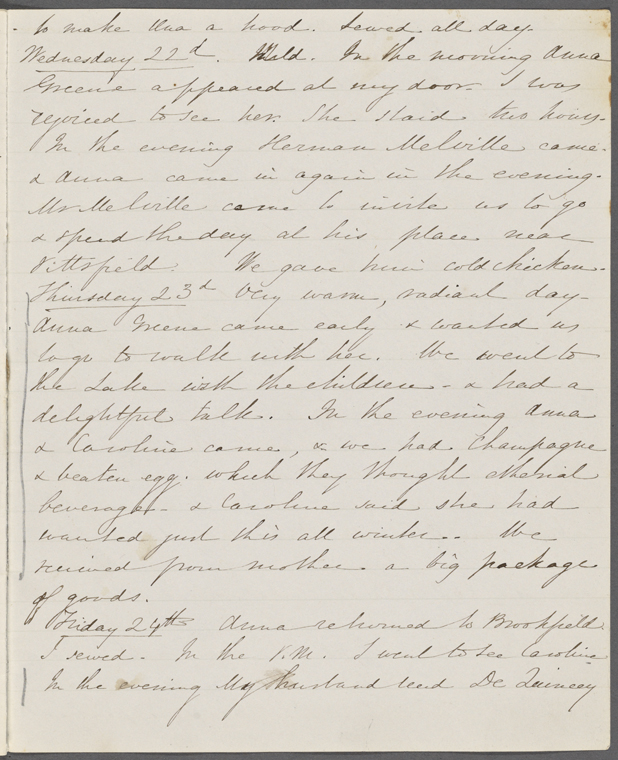 to make Una a hood. Sewed all day.
Wednesday 22d. Mild. In the morning Anna
Greene appeared at my door. I was
rejoiced to see her. She staid two hours.
In the evening Herman Melville came.
& Anna came in again in the evening.
Mr Melville came to invite us to go
& spend the day at his place near
Pittsfield. We gave him cold chicken.
Thursday 23d Very warm, radiant day.
Anna Greene came early & wanted us
to go to walk with her. We went to
the Lake with the children - & had a
delightful talk. In the evening Anna
& Caroline came, & we had Champagne
& beaten egg. which they thought etherial
beverage - & Caroline said she had
wanted just this all winter.. We
received from mother a big package
of goods.
Friday 24th Anna returned to Brookfield.
I sewed. In the P.M. I went to see Caroline
In the evening My husband read De Quincey